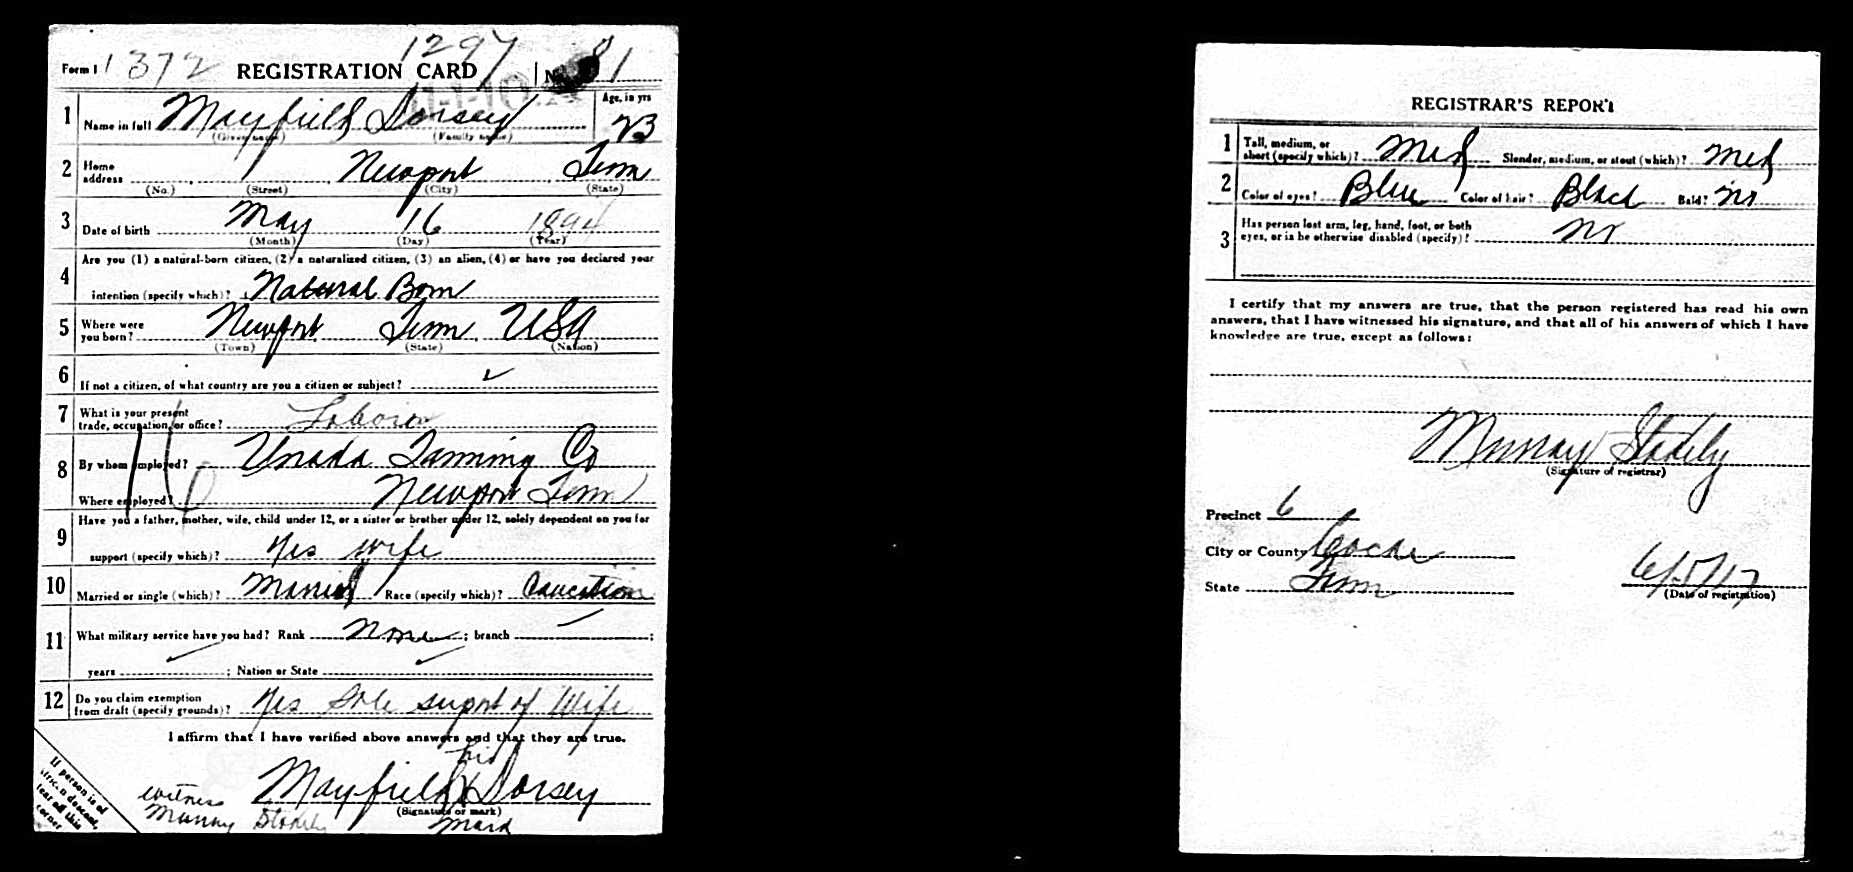 Form 1 1372 REGISTRATION CARD 1297 No. 81
1 Name in full Mayfield Dorsey Age, in yrs 23
(Given name) (Family name)
2 Home address Newport Tenn
(No.) (Street) (City) (State)
3 Date of birth May 16 1894
(Month) (Day) (Year)
4 Are you (1) a natural-born citizen, (2) a naturalized citizen, (3) an alien, (4) or have you declared your
intention (specify which)? Natural Born
5 Where were you born? Newport Tenn USA
(Town) (State) (Nation)
6 If not a citizen, of what country are you a citizen or subject? ✓
7 What is your present trade, occupation or office? Laborer
8 By whom employed? Unaka Tanning Co
Where employed? Newport Tenn
16
9 Have you a father, mother, wife, child under 12, or a sister or brother under 12, solely dependent on you for
support (specify which)? Yes wife
10 Married or single (which)? Married Race (specify which)? Caucation
11 What military service have you had? Rank None ; branch ;
years ; Nation or State
12 Do you claim exemption from draft (specify grounds)? Yes Sole suport of Wife
I affirm that I have verified above answers and that they are true.
his
Mayfield X Dorsey
(Signature or mark)
mark
witness
Murray Stokely
If person is of
African descent,
tear off this
corner
REGISTRAR'S REPORT
1 Tall, medium, or short (specify which)? Med Slender, medium, or stout (which)? Med
2 Color of eyes? Blue Color of hair? Black Bald? no
3 Has person lost arm, leg, hand, foot, or both
eyes, or is he otherwise disabled (specify)? No
I certify that my answers are true, that the person registered has read his own
answers, that I have witnessed his signature, and that all of his answers of which I have
knowledge are true, except as follows:
Murray Stokely
(Signature of registrar)
Precinct 6
City or County Cocke
State Tenn
6/5/17
(Date of registration)